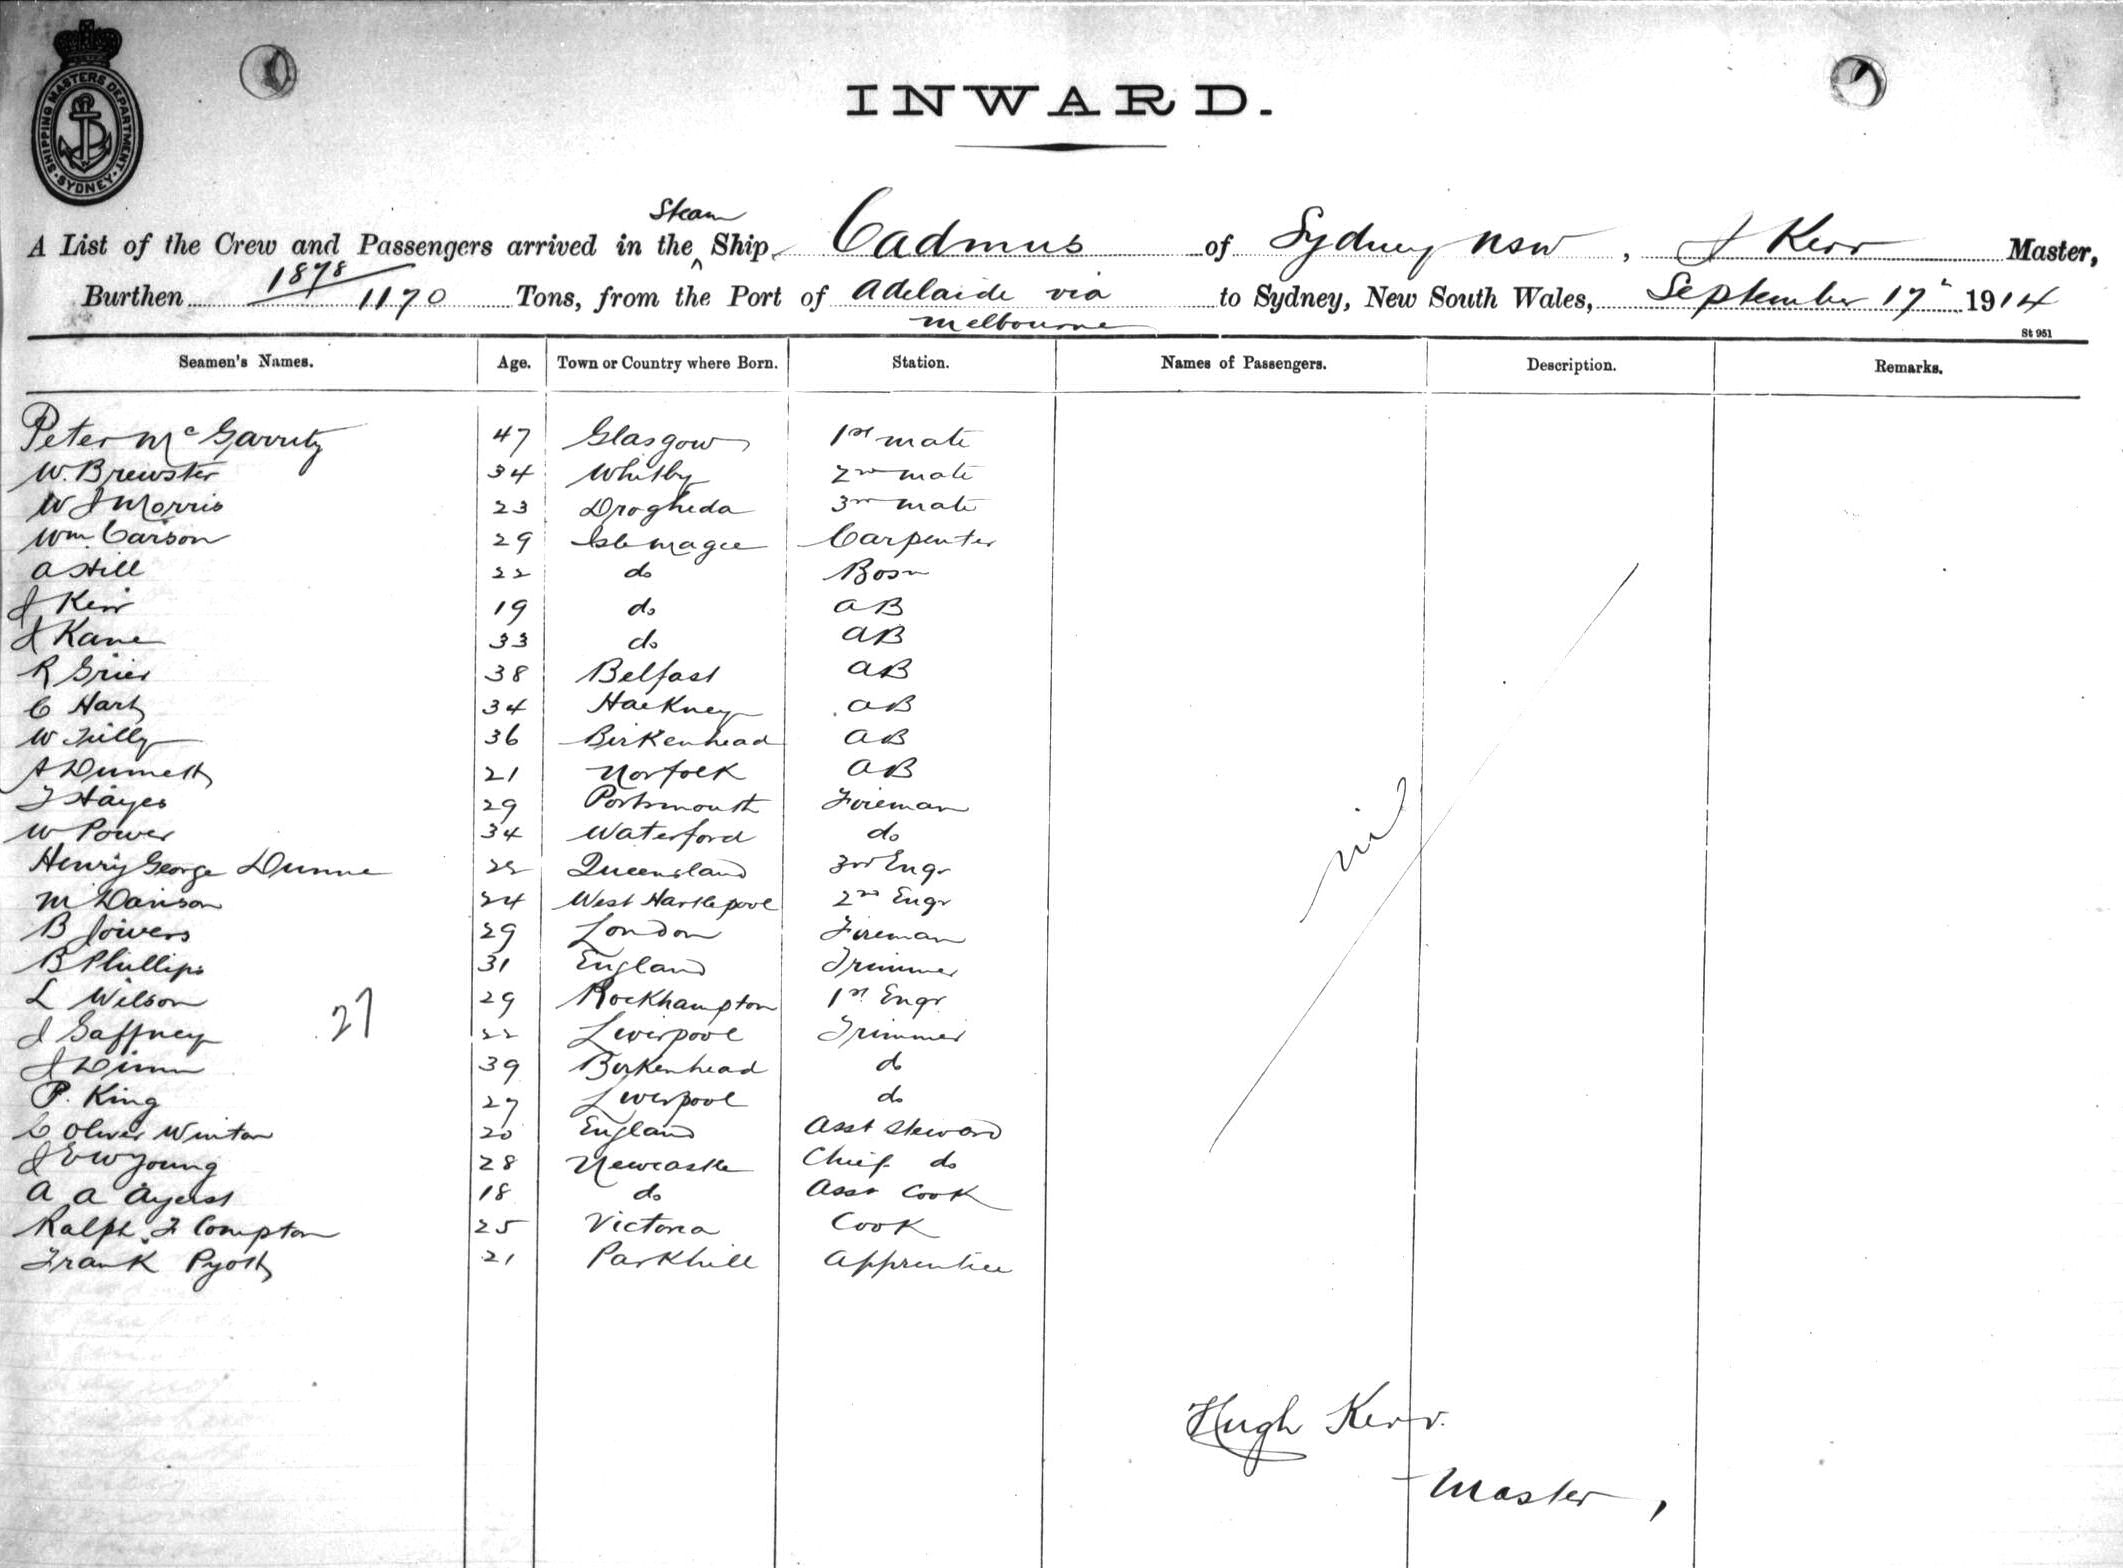 SHIPPING MASTERS DEPARTMENT. SYDNEY.
INWARD.
Steam
A List of the Crew and Passengers arrived in the ^ Ship Cadmus of Sydney NSW, J Kerr Master,
Burthen 1878/1170 Tons, from the Port of Adelaide via Melbourne to Sydney, New South Wales, September 17" 1914
St 951
Seamen's Names. Age. Town or Country where Born. Station. Names of Passengers. Description. Remarks.
Peter McGarrity 47 Glasgow 1st mate
W. Brewster 34 Whitby 2nd mate
W J Morris 23 Drogheda 3rd mate
Wm. Carson 29 Isle Magee Carpenter
A Hill 22 do Bosn
J Kerr 19 do AB
J Kane 33 do AB
R Grier 38 Belfast AB
C Hart 34 Hackney AB
W Tilly 36 Birkenhead AB
A Dumett 21 Norfolk AB
T Hayes 29 Portsmouth Fireman
W Power 34 Waterford do
Henry George Dunne 22 Queensland 3rd Engr
M Davison 24 West Hartlepool 2nd Engr
B Jowers 29 London Fireman
B Phillips 31 England Trimmer
L Wilson 29 Rockhampton 1st Engr
J Gaffney 27 22 Liverpool Trimmer
J Dunn 39 Birkenhead do
P. King 27 Liverpool do
C Oliver Winton 20 England Asst Steward
J E W Young 28 Newcastle Chief do
A A Ayerst 18 do Asst Cook
Ralph. F Compton 25 Victoria Cook
Frank Pyott 21 Parkhill Apprentice
nil
Hugh Kerr.
Master,